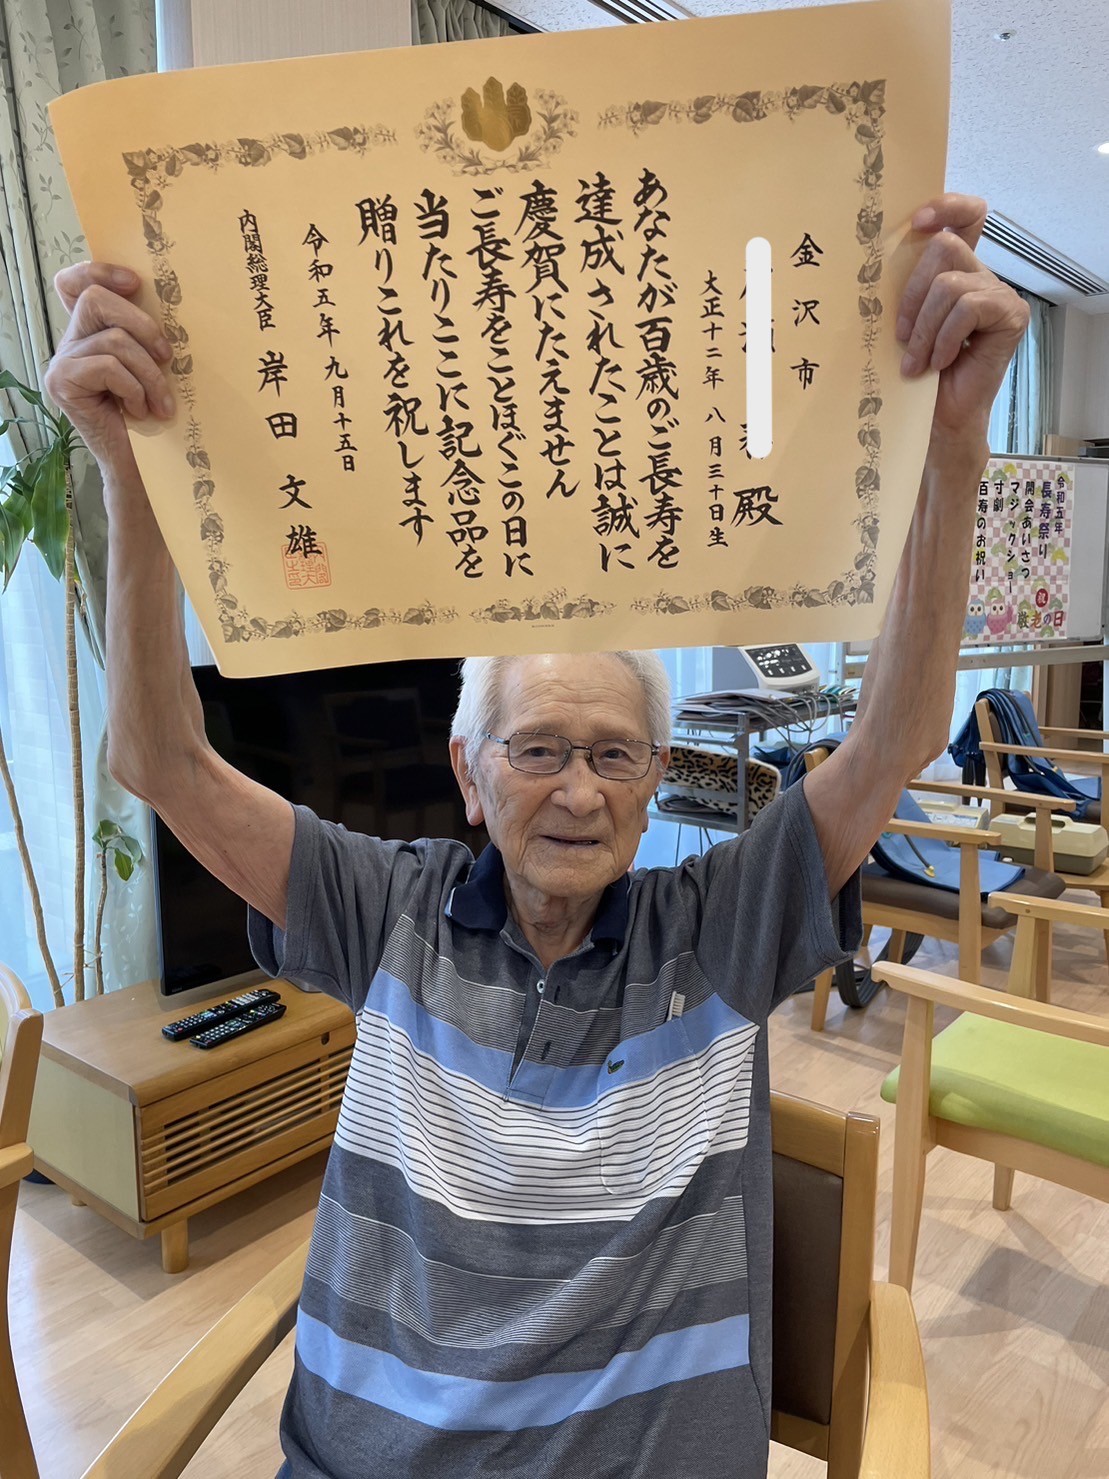 金沢市
殿
大正十二年八月三十日生
あなたが百歳のご長寿を
達成されたことは誠に
慶賀にたえません
ご長寿をことほぐこの日に
当たりここに記念品を
贈りこれを祝します
令和五年九月十五日
内閣総理大臣 岸田文雄
令和五年
長寿祭り
開会あいさつ
マジックショー
寸劇
百寿のお祝い
祝
敬老の日